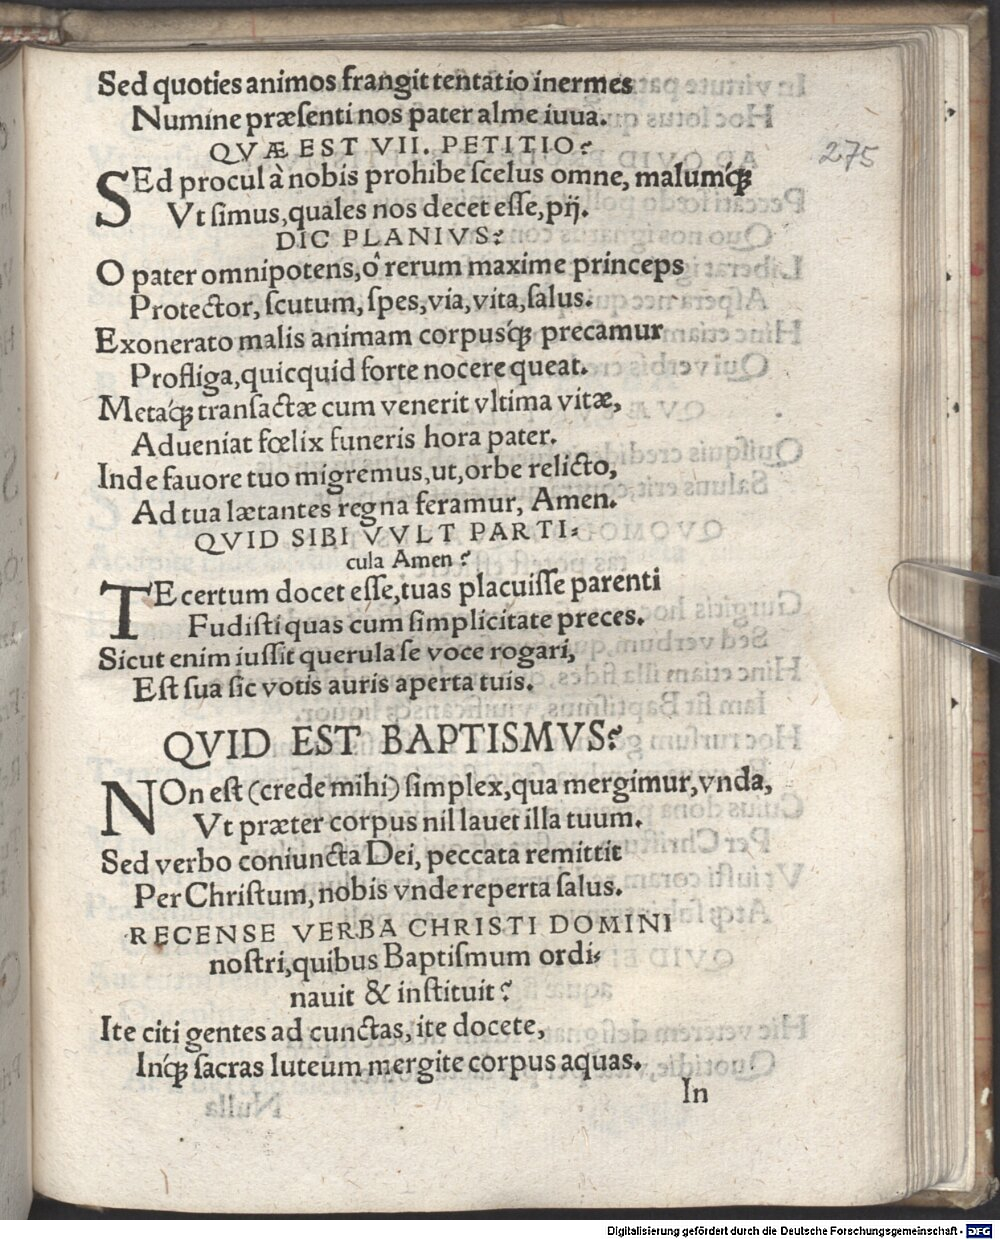 Sed quoties animos frangit tentatio inermes
Numine præsenti nos pater alme iuua.
QVÆ EST VII. PETITIO?
275
SEd procul à nobis prohibe ſcelus omne, malumq́ꝫ
Vt ſimus, quales nos decet eſſe, pij.
DIC PLANIVS?
O pater omnipotens, ô rerum maxime princeps
Protector, ſcutum, ſpes, via, vita, ſalus.
Exonerato malis animam corpusq́ꝫ precamur
Profliga, quicquid forte nocere queat.
Metaq́ꝫ transactæ cum venerit vltima vitæ,
Adueniat fœlix funeris hora pater.
Inde fauore tuo migremus, ut, orbe relicto,
Ad tua lætantes regna feramur, Amen.
QVID SIBI VVLT PARTI-
cula Amen?
TE certum docet eſſe, tuas placuiſſe parenti
Fudiſti quas cum ſimplicitate preces.
Sicut enim iuſſit querula ſe voce rogari,
Eſt ſua ſic votis auris aperta tuis.
QVID EST BAPTISMVS?
NOn eſt (crede mihi) ſimplex, qua mergimur, vnda,
Vt præter corpus nil lauet illa tuum.
Sed verbo coniuncta Dei, peccata remittit
Per Chriſtum, nobis vnde reperta ſalus.
RECENSE VERBA CHRISTI DOMINI
noſtri, quibus Baptiſmum ordi-
nauit & inſtituit?
Ite citi gentes ad cunctas, ite docete,
Inq́ꝫ ſacras luteum mergite corpus aquas.
In
Digitalisierung gefördert durch die Deutsche Forschungsgemeinschaft - DFG